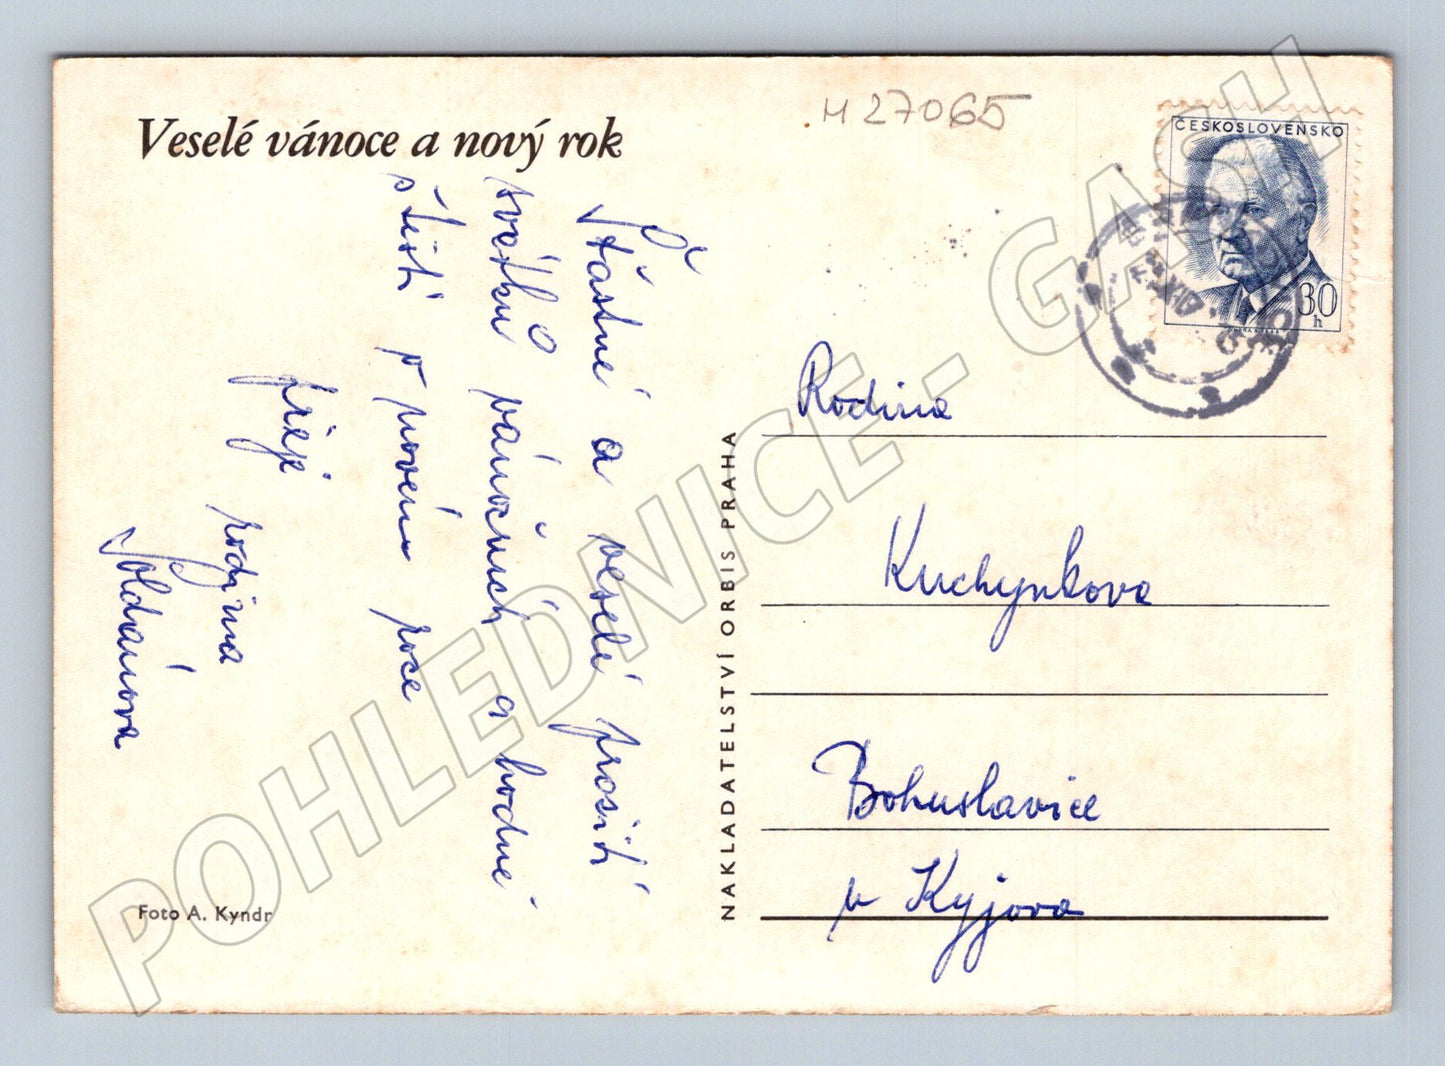 Veselé vánoce a nový rok
H 27065
ČESKOSLOVENSKO
30
h
Šťastné a veselé prosití
svátků vánočních a hodně
štěstí v novém roce
přejí
rodina
Soldánova
Rodina
Kuchynkova
Bohuslavice
u Kyjova
NAKLADATELSTVÍ ORBIS PRAHA
Foto A. Kyndr
POHLEDNICE - GASH